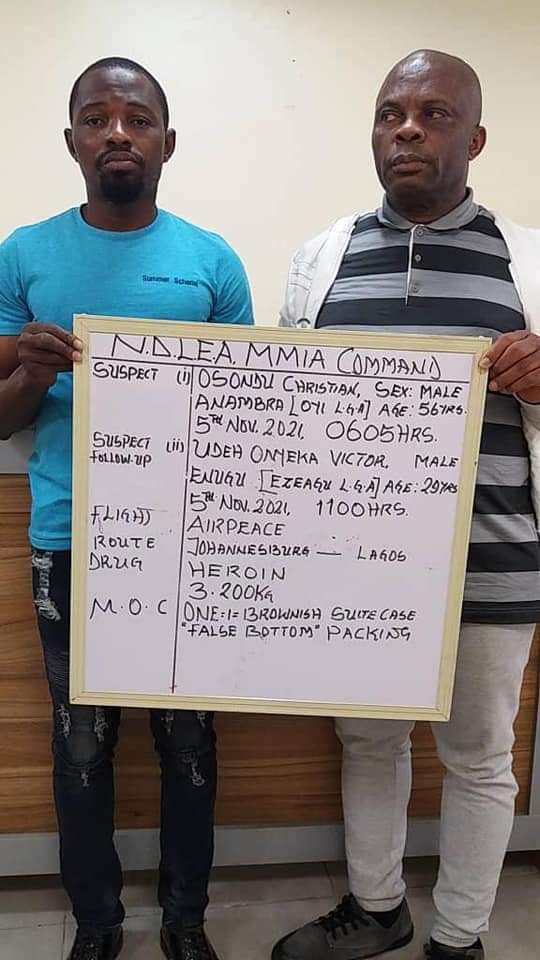 Summer
N.D.L.E.A. MMIA COMMAND
SUSPECT (i) OSONDU CHRISTIAN, SEX: MALE
ANAMBRA [OYI L.G.A] AGE: 56YRS.
5TH NOV. 2021, 0605HRS.
SUSPECT (ii) UDEH ONYEKA VICTOR, MALE
FOLLOW-UP
ENUGU [EZEAGU L.G.A] AGE: 29YRS
5TH NOV. 2021, 1100HRS.
FLIGHT AIRPEACE
ROUTE JOHANNESBURG — LAGOS
DRUG HEROIN
3.200KG
M.O.C ONE=1=BROWNISH SUITE CASE
"FALSE BOTTOM" PACKING